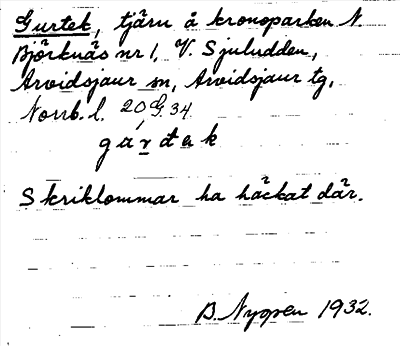 Gurtek, tjärn å kronoparken N.
Björknäs nr 1, V. Sjuludden,
Arvidsjaur sn, Arvidsjaur tg,
Norrb. l. 20 G. 34
gárdak
Skriklommar ha häckat där.
B. Nygren 1932.